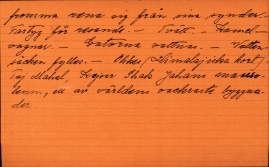 fromma rena sig från sina synder.
Fartyg för resande. — Tvätt. — Kamel-
vagnar. — Gatorna vattnas. — Vatten-
säcken fylles. — Ekkas (Himalajiska kort)
Taj Mahal, Schah Jahans mauso-
leum, ett av världens vackraste byggna-
der